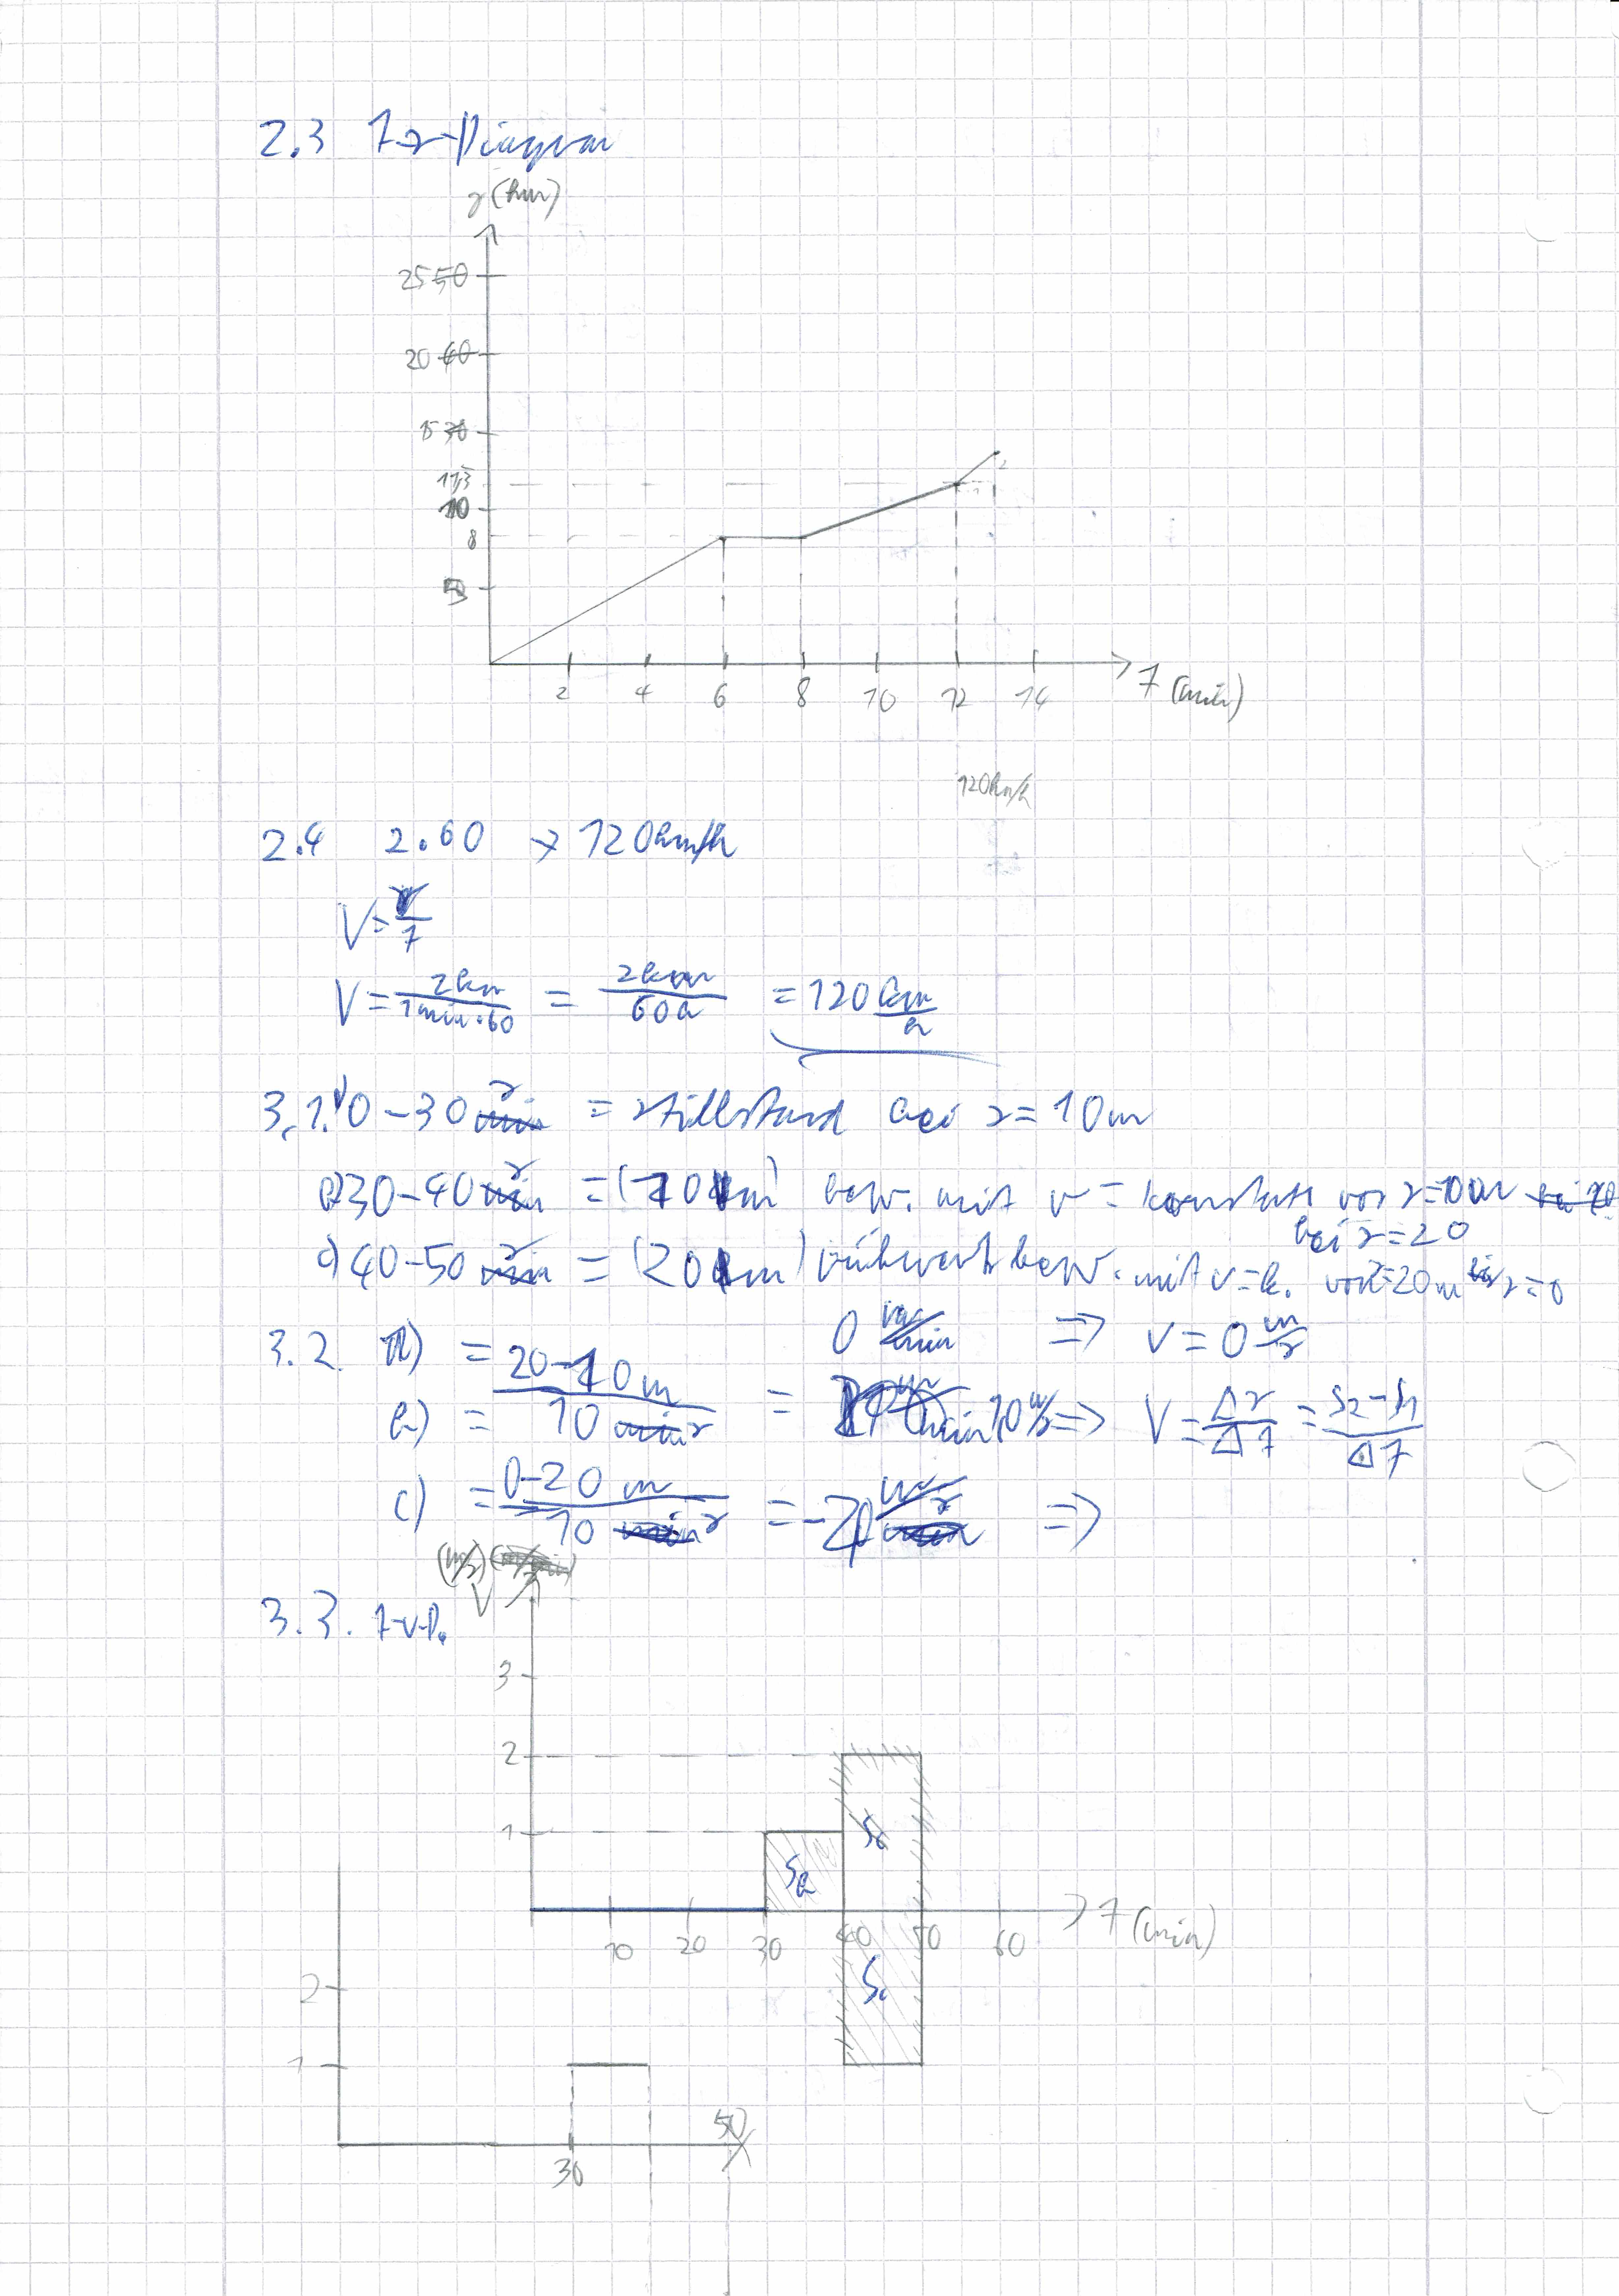 2.3 t-s-Diagram
s (km)
25 50
20 40
15 30
11,3
10
8
5
2 4 6 8 10 12 14 t (min)
120km/h
2.4 2·60 → 120km/h
V = s/t
V = 2km/1min·60 = 2km/60 = 120 km/h
3.1. 0-30 min s = stillstand bei s=10m
b) 30-40 min s = (10 m) bew. mit v = konstant von s=10m
bei s=20
c) 40-50 min s = (20 m) rückwerts bew. mit v=k. von s=20m bis s=0
3.2. a) = 0 m/min ⇒ V = 0 m/s
b) = 20-10 m/10 min s = 10 m/s ⇒ V = Δs/Δt = s2-s1/Δt
c) = 0-20 m/10 min s = -20 m/s ⇒
(m/s)
3.3. t-v-D. V
3
2
1
Sb
10 20 30 40 50 60 t (min)
2
1
50
30